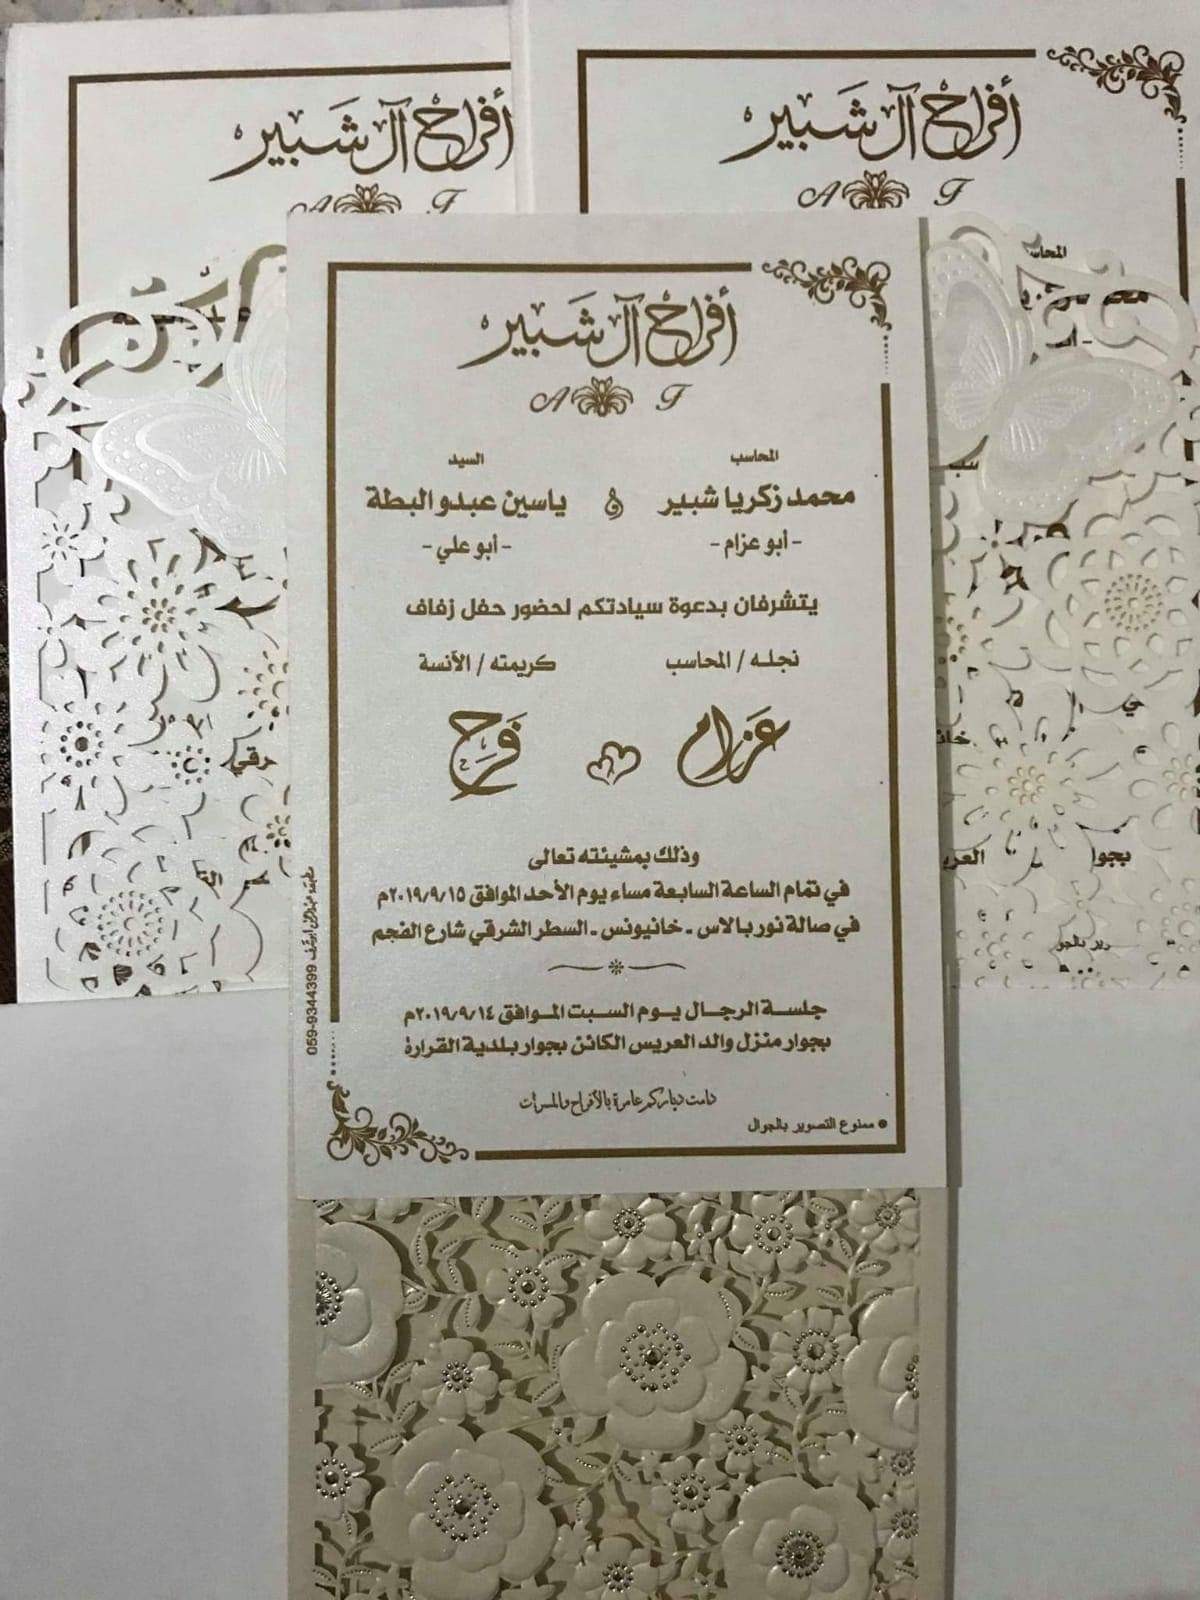 أفراح آل شبير
أفراح آل شبير
A T
A T
المحاسب
أفراح آل شبير
A T
المحاسب
السيد
محمد زكريا شبير و ياسين عبدو البطة
- أبو عزام -
- أبو علي -
يتشرفان بدعوة سيادتكم لحضور حفل زفاف
نجله / المحاسب
كريمته / الآنسة
عزام
فرح
وذلك بمشيئته تعالى
في تمام الساعة السابعة مساء يوم الأحد الموافق ٢٠١٩/٩/١٥م
في صالة نور بالاس - خانيونس - السطر الشرقي شارع الفجم
جلسة الرجال يوم السبت الموافق ٢٠١٩/٩/١٤م
بجوار منزل والد العريس الكائن بجوار بلدية القرارة
دامت دياركم عامرة بالأفراح والمسرات
• ممنوع التصوير بالجوال
059-9344399